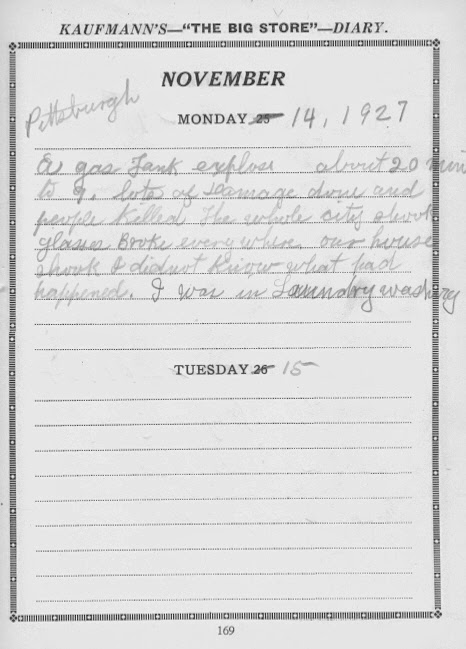 KAUFMANN'S—"THE BIG STORE"—DIARY.
NOVEMBER
Pittsburgh
MONDAY 25 14, 1927
A gas Tank explose about 20 min
to 9. lots of Damage done and
people killed The whole city shook
glasses Broke everywhere our house
shook I did not Know what had
happened. I was in Laundry washing
TUESDAY 26 15
169